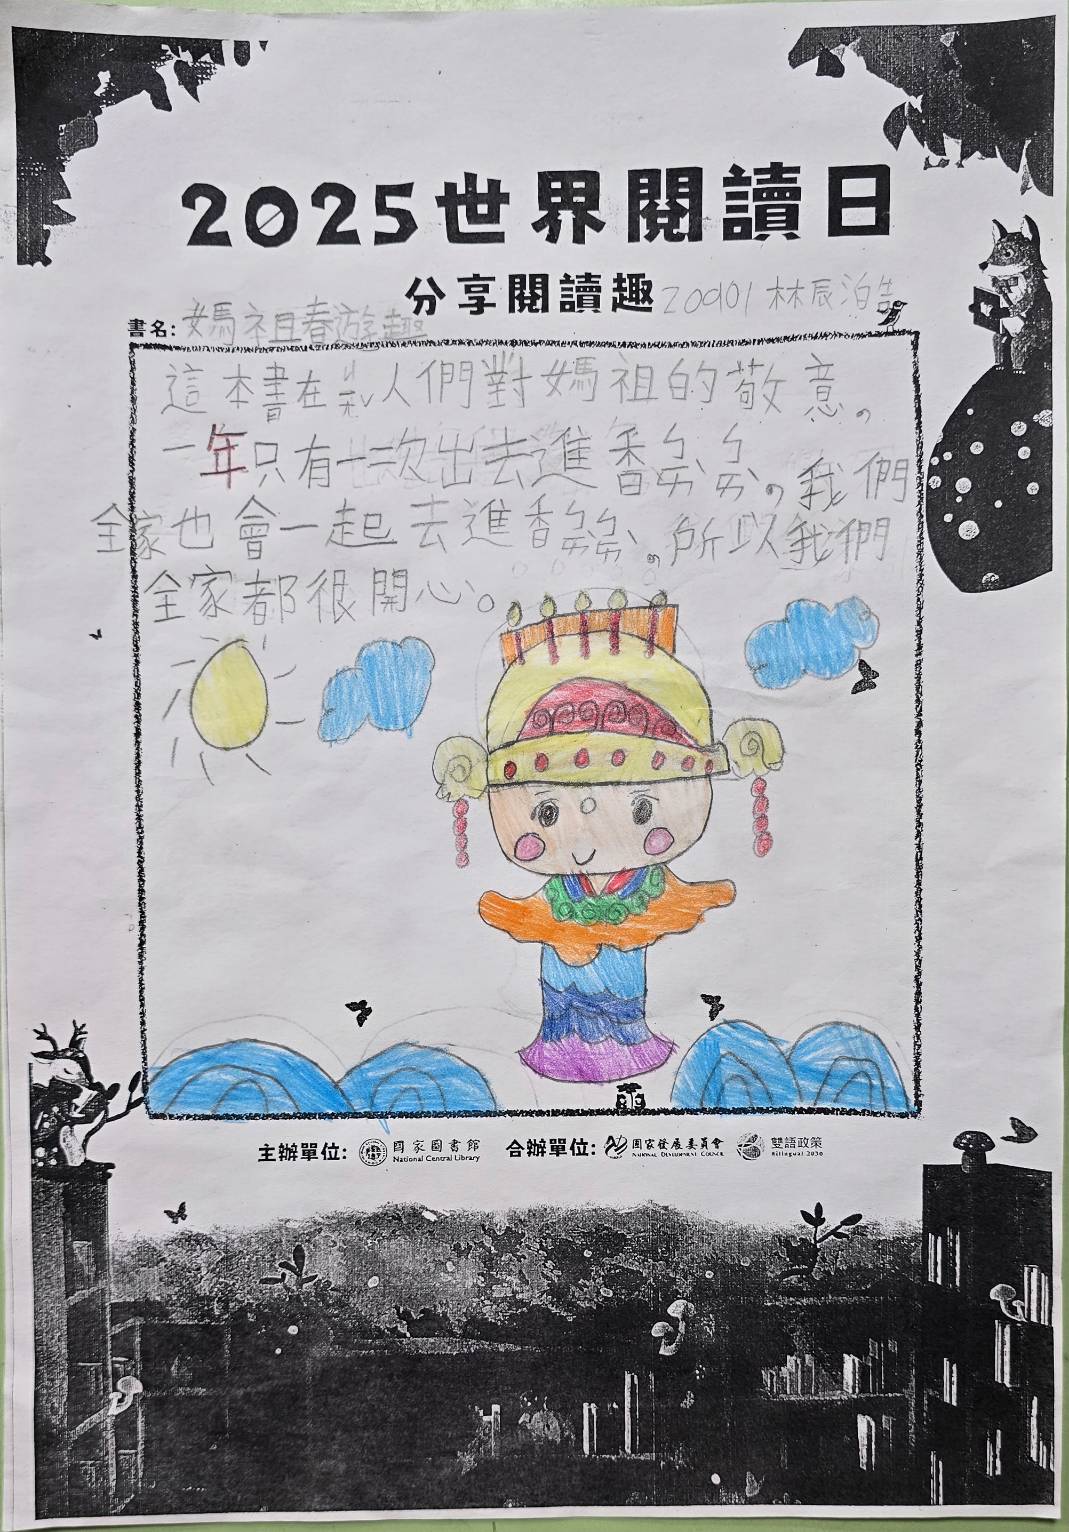 2025世界閱讀日
分享閱讀趣
20901 林辰泊皓
書名: 媽祖春遊趣
這本書在ㄐㄧ人們對媽祖的敬意。
一年只有一次出去進香ㄌㄌ。我們
全家也會一起去進香ㄌㄌ。所以我們
全家都很開心。
主辦單位: 國家圖書館 合辦單位: 國家發展委員會 雙語政策
National Central Library NATIONAL DEVELOPMENT COUNCIL Bilingual 2030